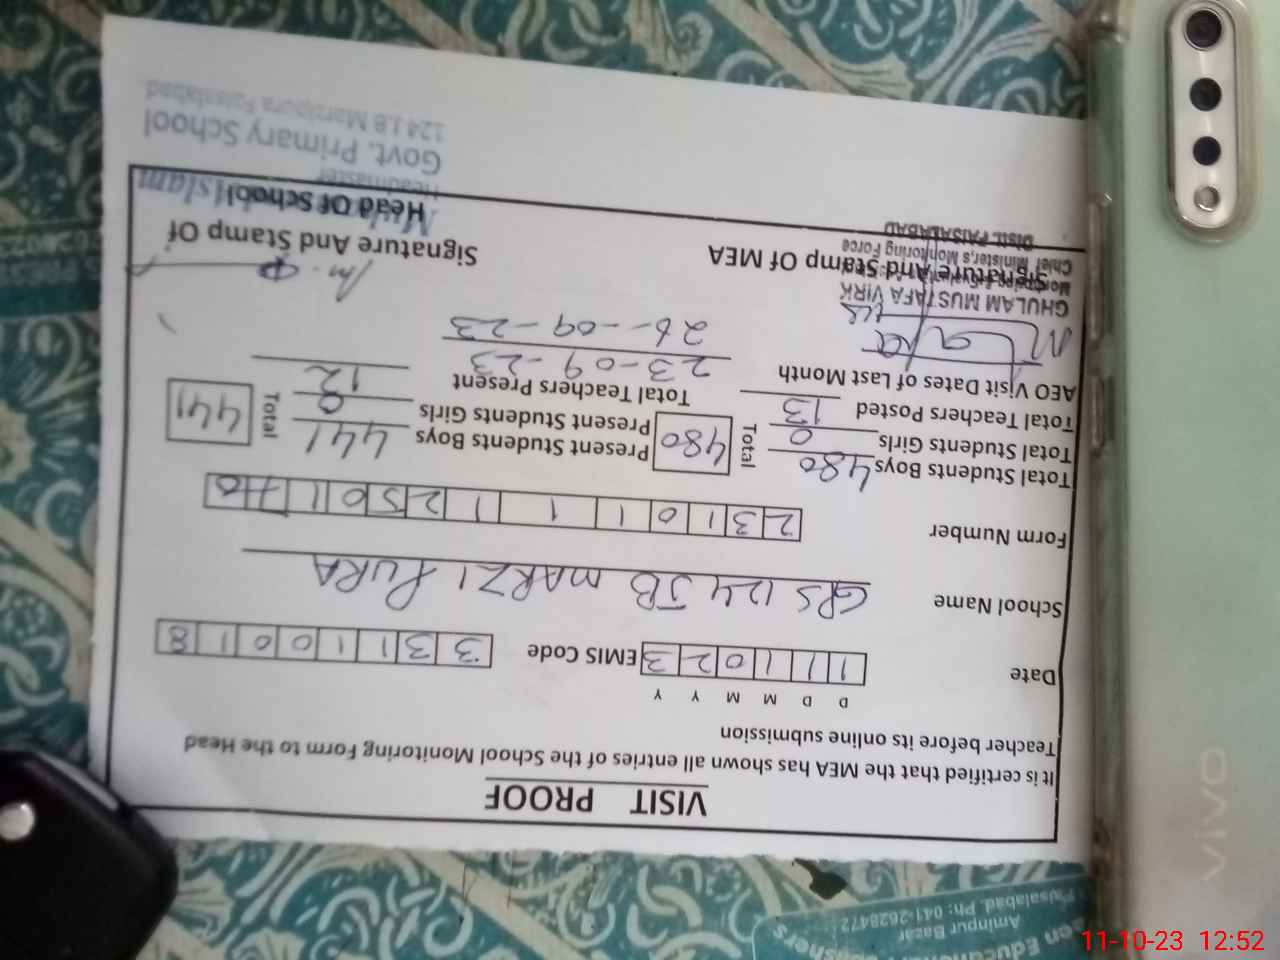 VISIT PROOF
It is certified that the MEA has shown all entries of the School Monitoring Form to the Head
Teacher before its online submission
D D M M Y Y
Date 1 1 1 0 2 3 EMIS Code 3 3 1 1 0 0 1 8
School Name GPS 124 JB MARZI PURA
Form Number 2 3 1 0 1 1 1 2 5 0 1
Total Students Boys 480 Total 480 Present Students Boys 441 Total 441
Total Student Girls 0 Present Students Girls 0
Total Teachers Posted 13 Total Teachers Present 12
AEO Visit Dates of Last Month 23-09-23
26-09-23
GHULAM MUSTAFA VIRK
Chief Minister's Monitoring Force
Distt. FAISALABAD
Signature And Stamp Of MEA
Signature And Stamp Of
Head Of School
Headmaster
Govt. Primary School
124 J.B Marzipura Faisalabad.
vivo
Aminpur Bazar
Faisalabad. Ph: 041-2628472
11-10-23 12:52